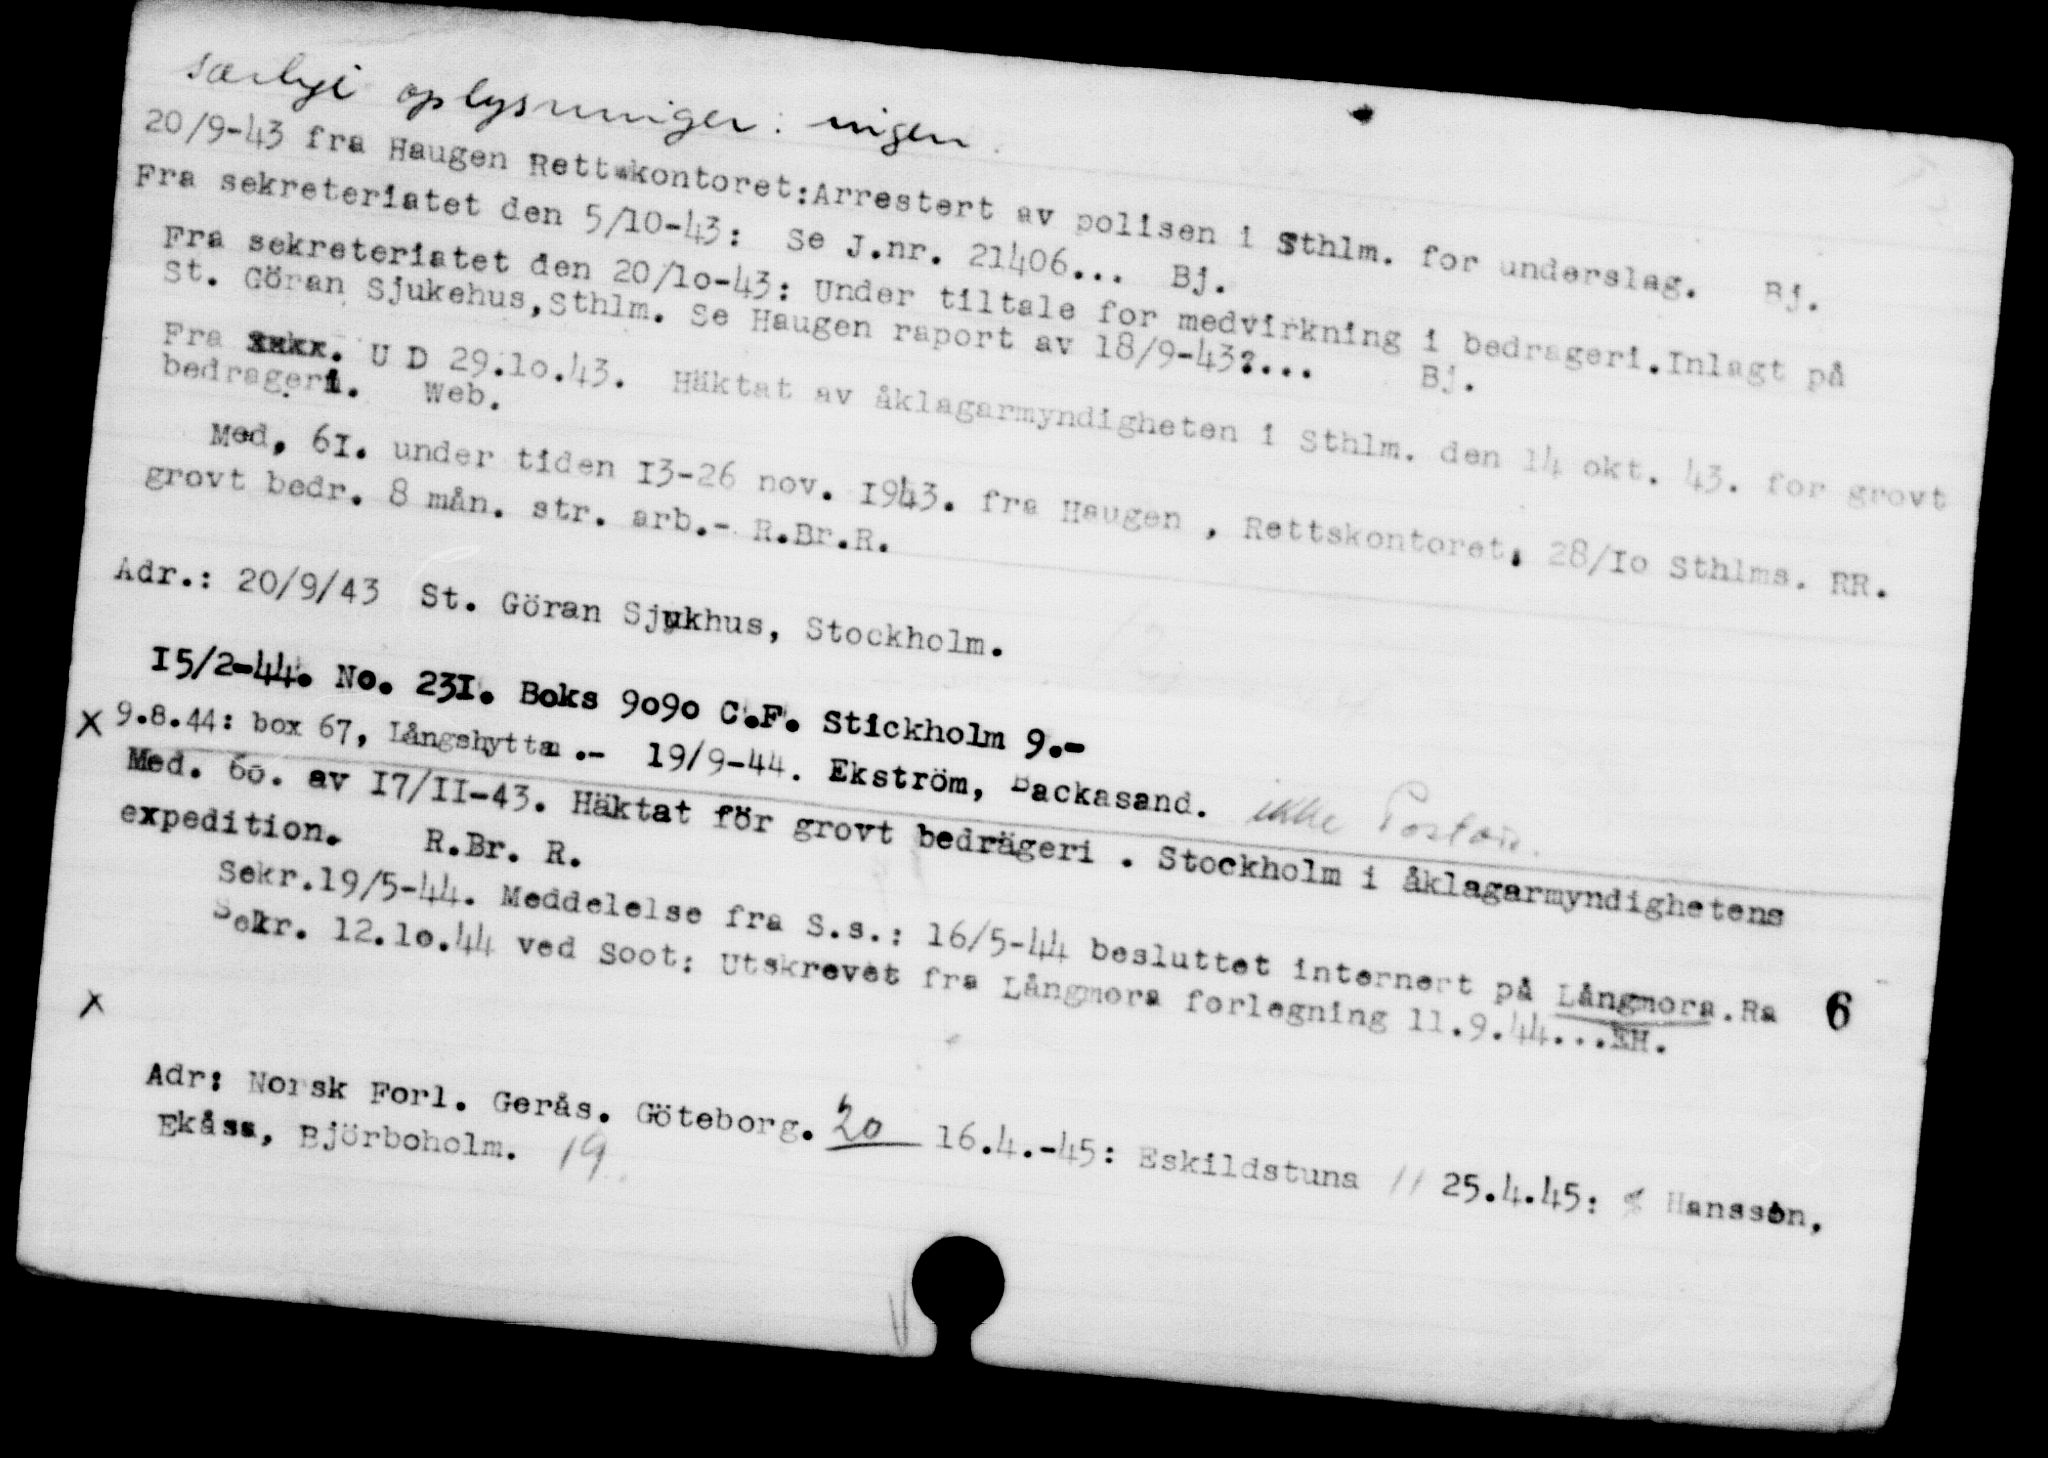 særlige oplysninger: ingen.
20/9-43 fra Haugen Rettskontoret:Arrestert av polisen i Sthlm. for underslag. Bj.
Fra sekreteriatet den 5/10-43: Se J.nr. 21406... Bj.
Fra sekreteriatet den 20/1o-43: Under tiltale for medvirkning i bedrageri.Inlagt på
St. Göran Sjukehus,Sthlm. Se Haugen raport av 18/9-43?... Bj.
Fra U D 29.1o.43. Häktat av åklagarmyndigheten i Sthlm. den 14 okt. 43. for grovt
bedrageri. Web.
Med, 6I. under tiden I3-26 nov. I943. fra Haugen , Rettskontoret, 28/Io Sthlms. RR.
grovt bedr. 8 mån. str. arb.- R.Br.R.
Adr.: 20/9/43 St. Göran Sjukhus, Stockholm.
I5/2-44. No. 23I. Boks 9o9o C.F. Stickholm 9.-
X 9.8.44: box 67, Långshyttan .- 19/9-44. Ekström, Backasand. ikke
Med. 60. av I7/II-43. Häktat för grovt bedrägeri . Stockholm i åklagarmyndighetens
expedition. R.Br. R.
Sekr.19/5-44. Meddelelse fra S.s.: 16/5-44 besluttet internert på Långmora.Ra 6
Sekr. 12.1o.44 ved Soot: Utskrevet fra Långmora forlegning 11.9.44...EH.
X
Adr: Norsk Forl. Gerås. Göteborg. 20 16.4.-45: Eskildstuna // 25.4.45: Hansson,
Ekåsa, Björboholm. 19.